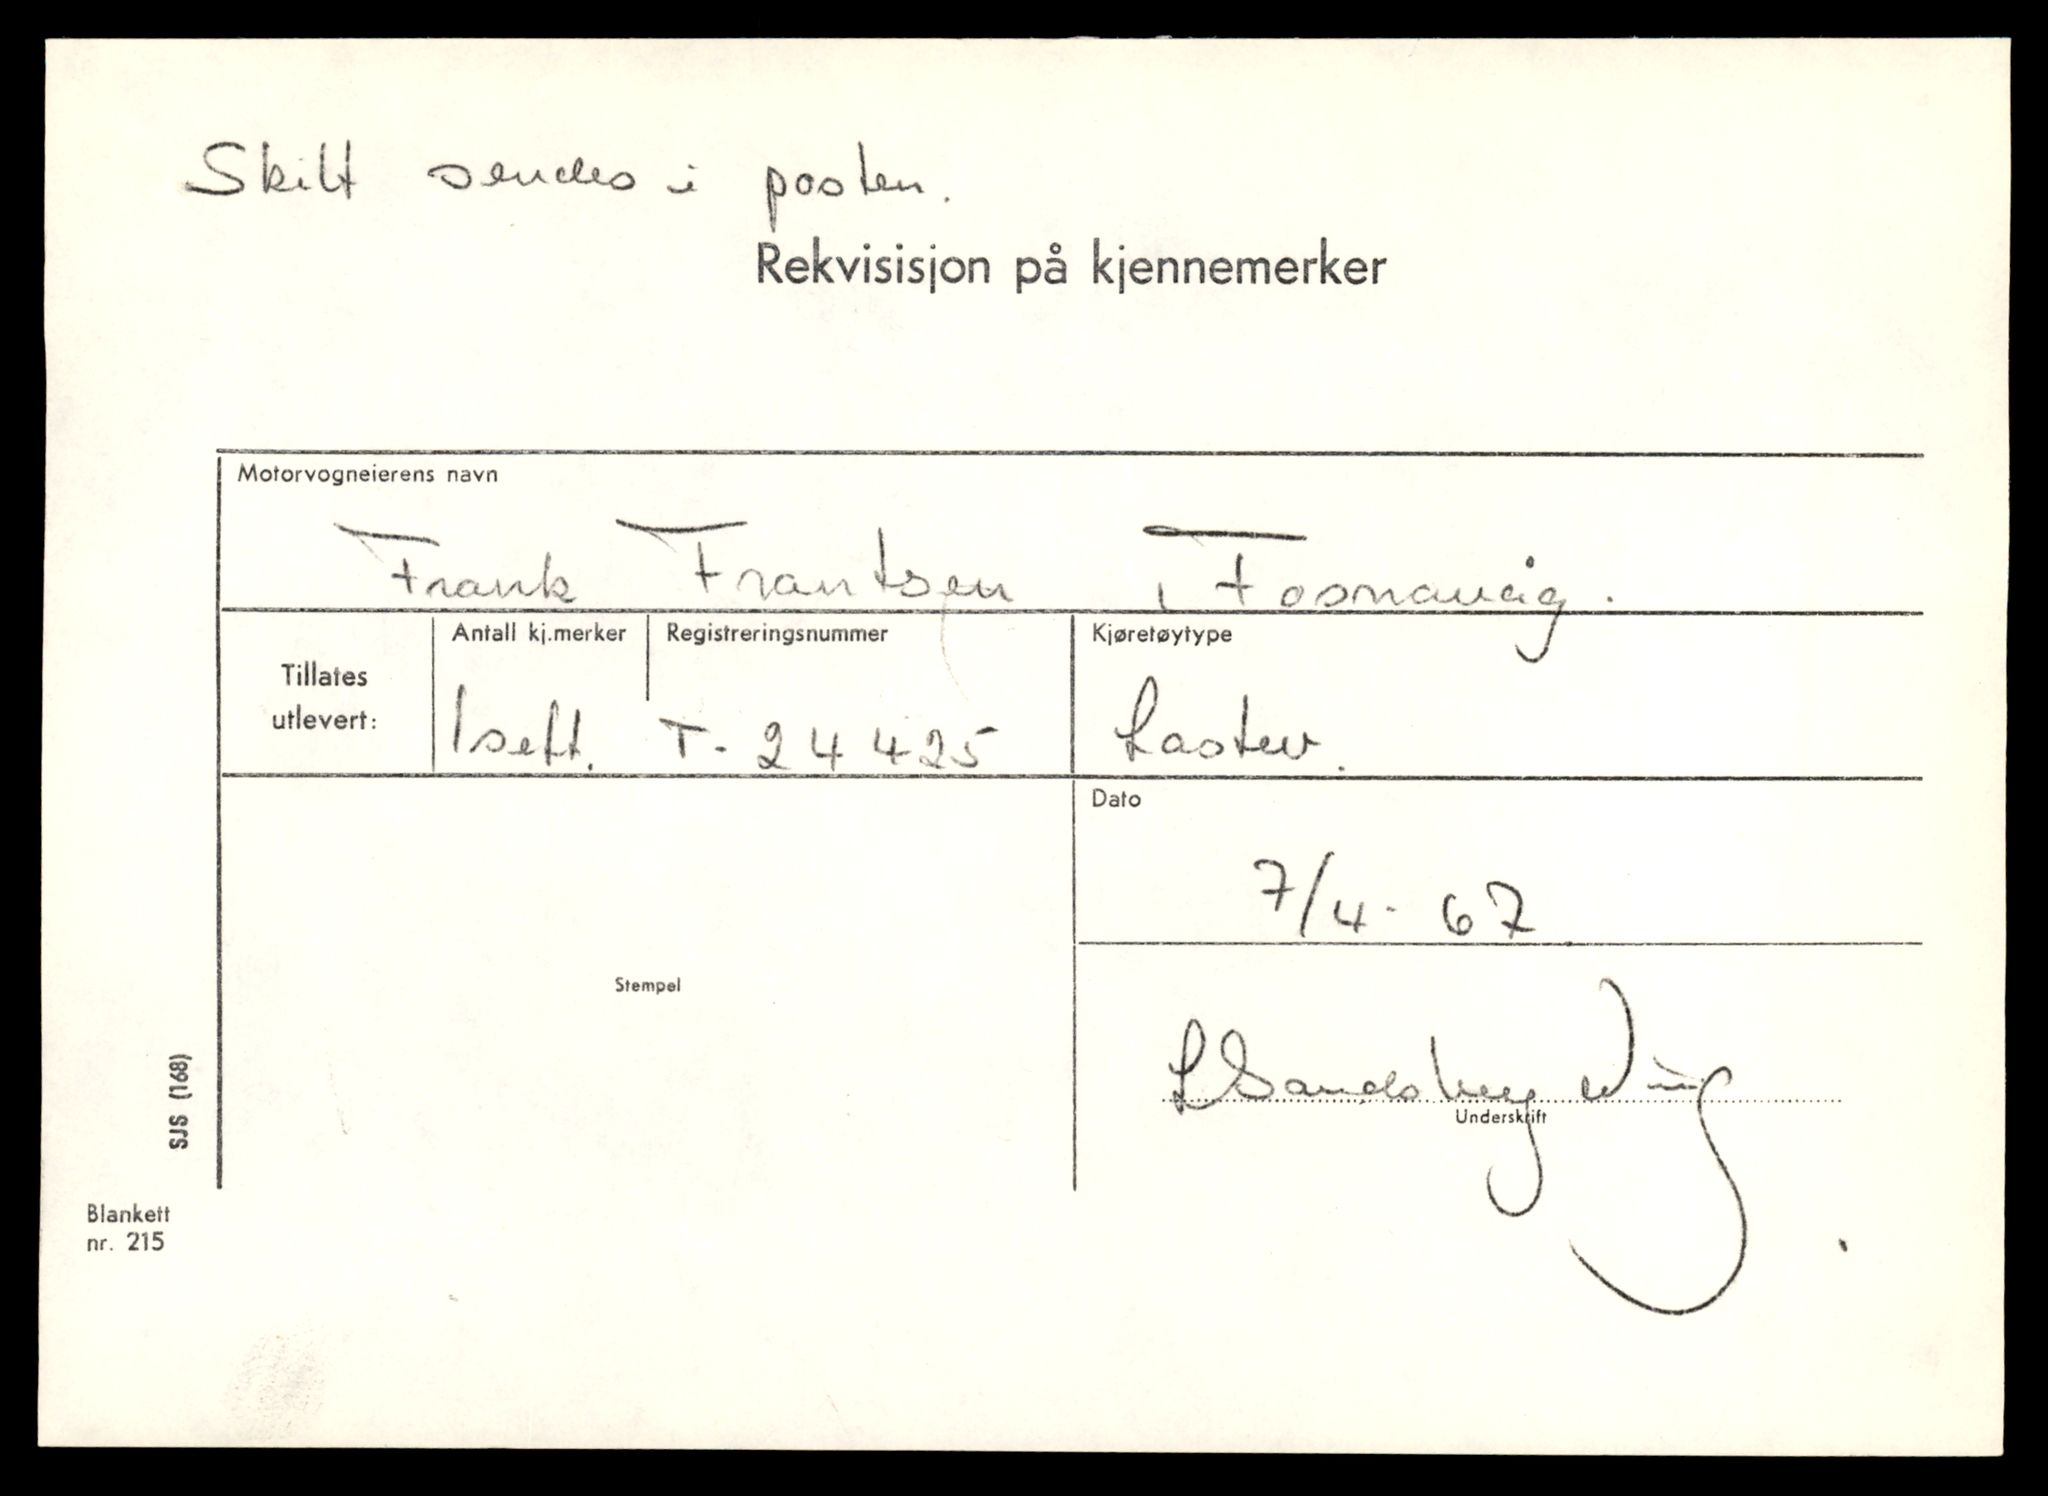 Skilt sendes i posten.
Rekvisisjon på kjennemerker
Motorvogneierens navn
Frank Frantsen , Fosnavåg.
Tillates utlevert:
Antall kj.merker
1 sett.
Registreringsnummer
T- 24425
Kjøretøytype
Lastev.
Dato
7/4- 67.
Stempel
Underskrift
SJS (168)
Blankett
nr. 215